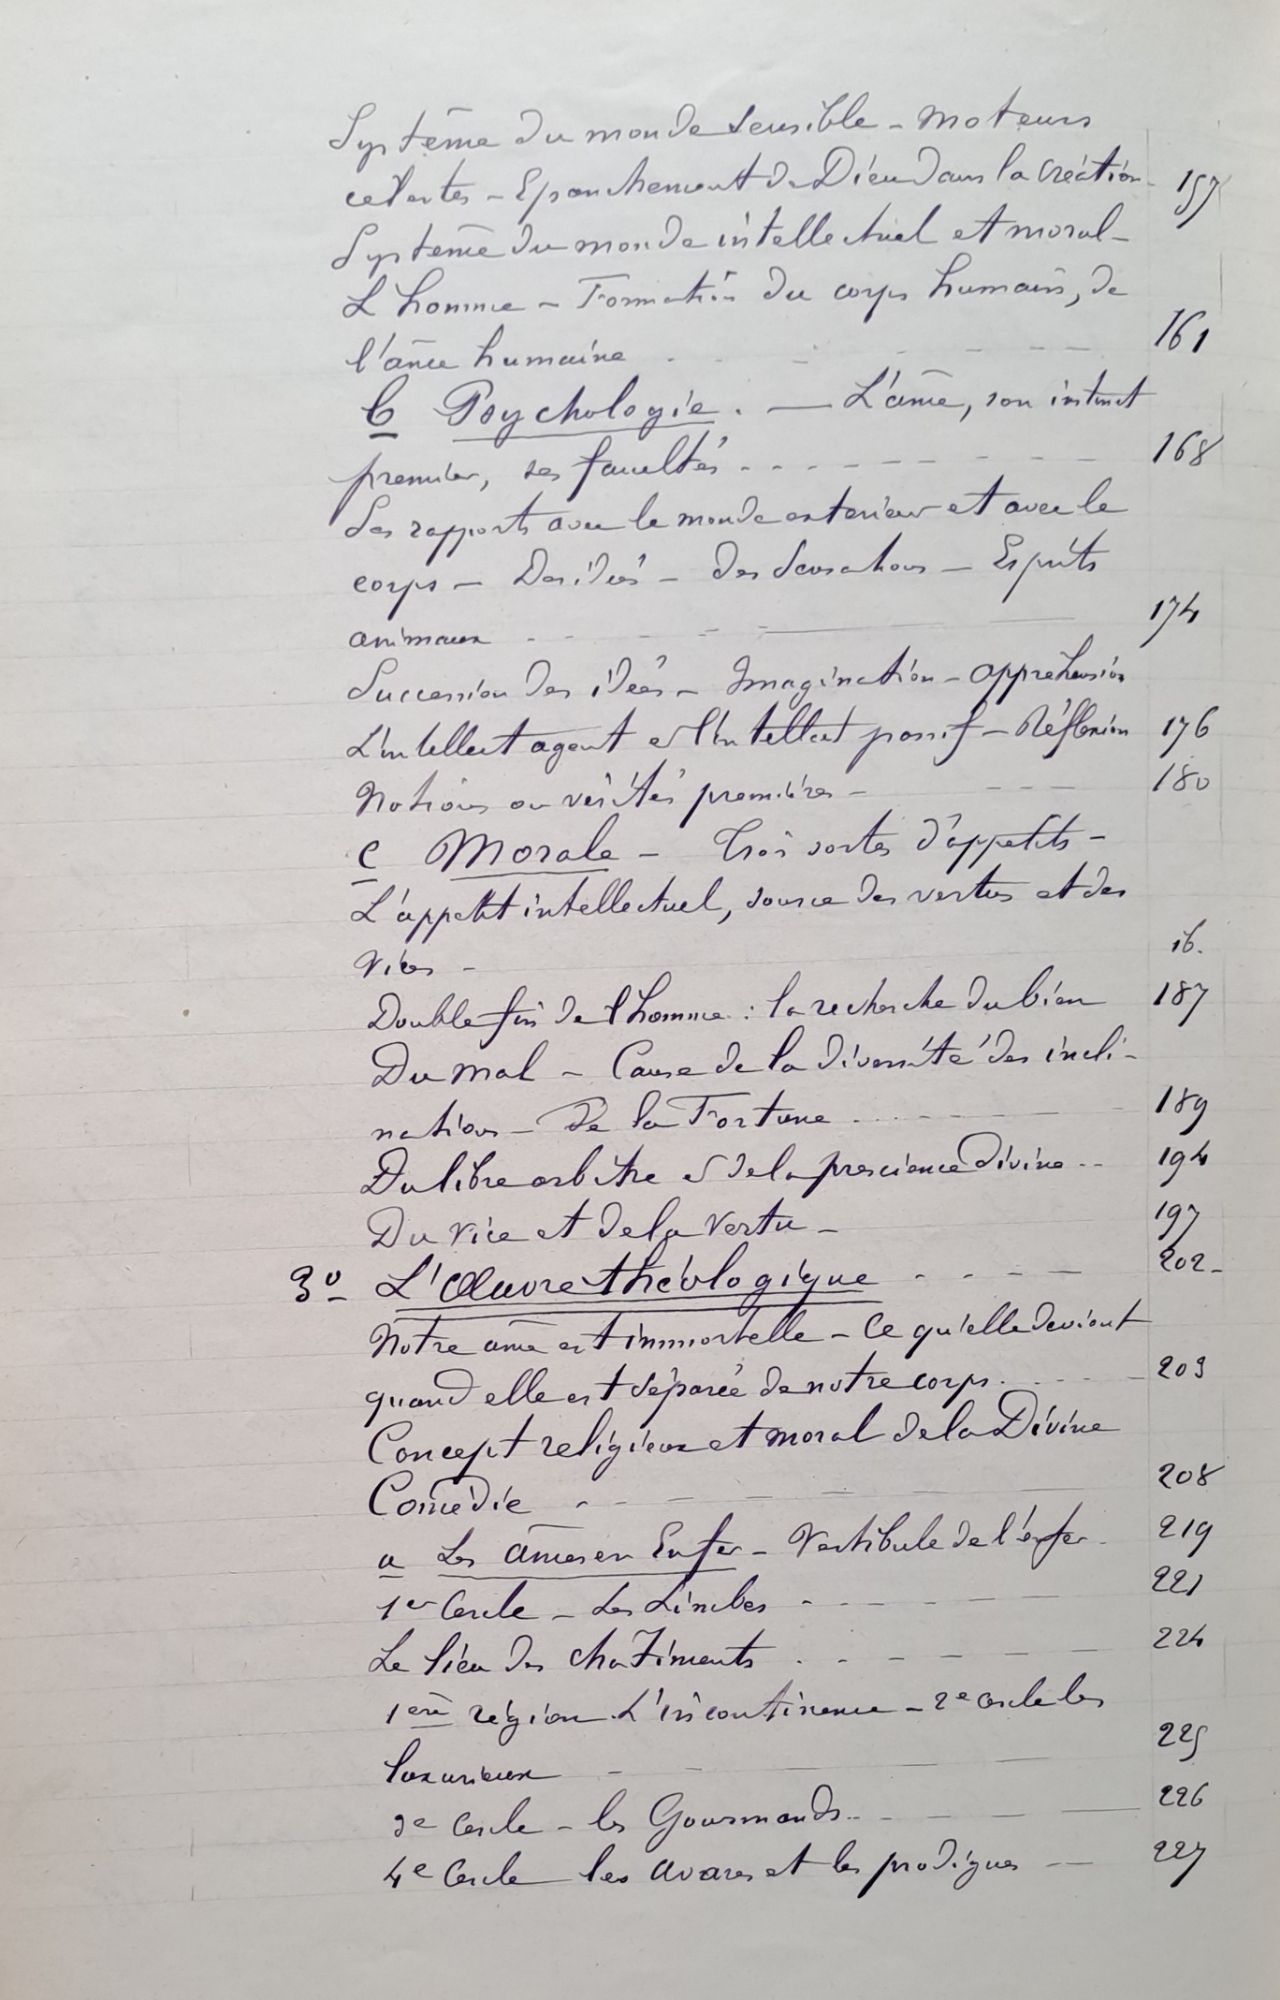 Système du monde sensible - Moteurs
célestes - Epanchement de Dieu dans la création - 157
Système du monde intellectuel et moral -
L'homme - Formation du corps humain, de
l'âme humaine . - - - - - 161
b Psychologie. — L'âme, son instinct
premier, ses facultés - - - - - - - - - 168
Ses rapports avec le monde extérieur et avec le
corps - Des idées - Des Sensations - Esprits
animaux - - - - - 174
Succession des idées - Imagination - appréhension
L'intellect agent et l'intellect passif - Réflexion 176
Notions ou vérités premières - - - - 180
c Morale - Trois sortes d'appétits -
L'appétit intellectuel, source des vertus et des
vices - ib.
Double fin de l'homme : la recherche du bien 187
Du mal - Cause de la diversité des incli-
nations - De la Fortune - - - - - 189
Du libre arbitre et de la prescience Divine - - 194
Du vice et de la Vertu - 197
3º L'Œuvre théologique - - - - 202 -
Notre âme est immortelle - Ce qu'elle devient
quand elle est séparée de notre corps. - - - - 203
Concept religieux et moral de la Divine
Comédie - - - - - 208
a Les âmes en Enfer - Vestibule de l'enfer - 219
1er Cercle - Les Limbes - - - - - 221
Le lieu des chatiments - - - - - 224
1ère région L'incontinence - 2e cercle les
luxurieux - - - - 225
3e Cercle - les Gourmands - - - - - 226
4e Cercle les avares et les prodigues - - 227